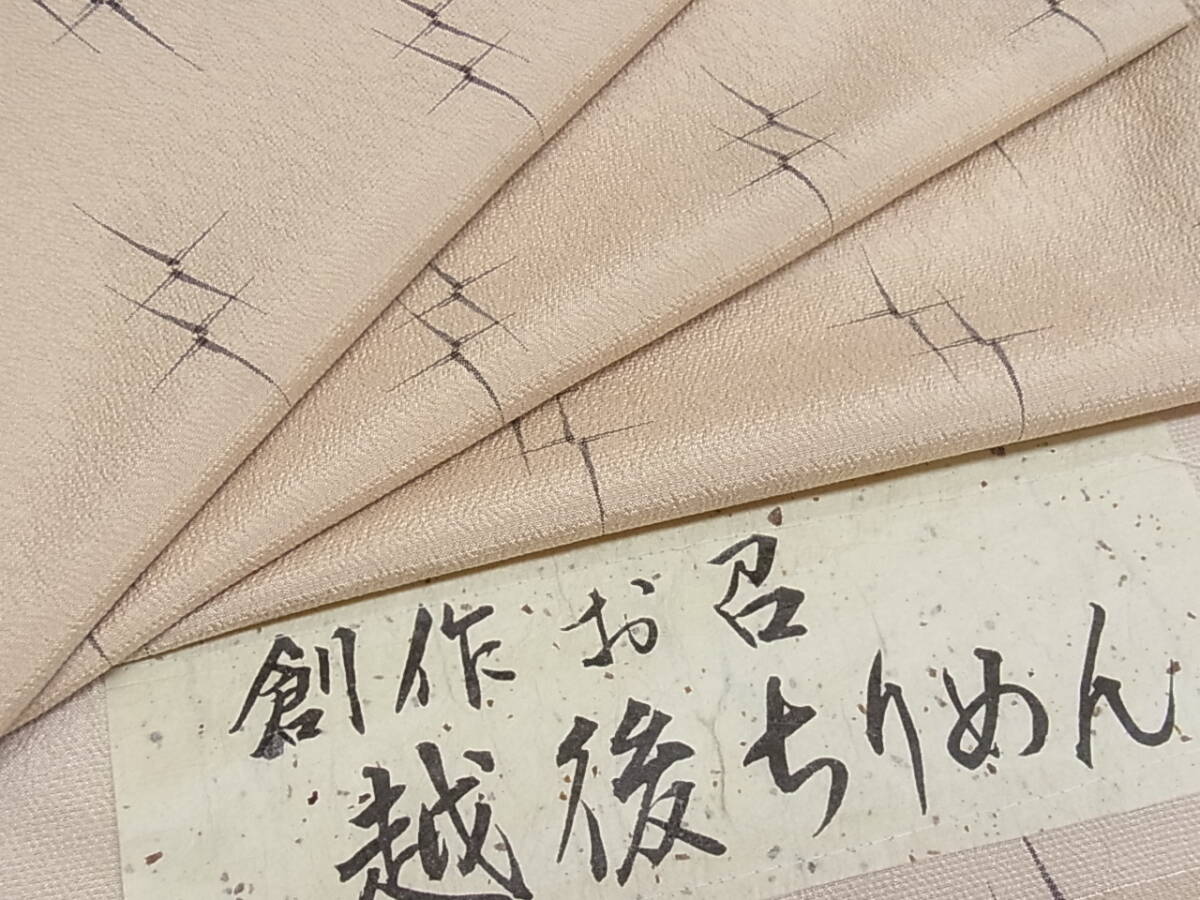 創作お召
越後ちりめん